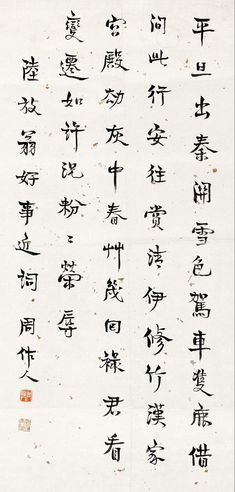 平旦出秦関雪色駕車雙鹿借
問此行安往賞清伊修竹漢家
宮殿劫灰中春艸幾回綠君看
變遷如許況紛〻榮辱
陸放翁好事近詞 周作人